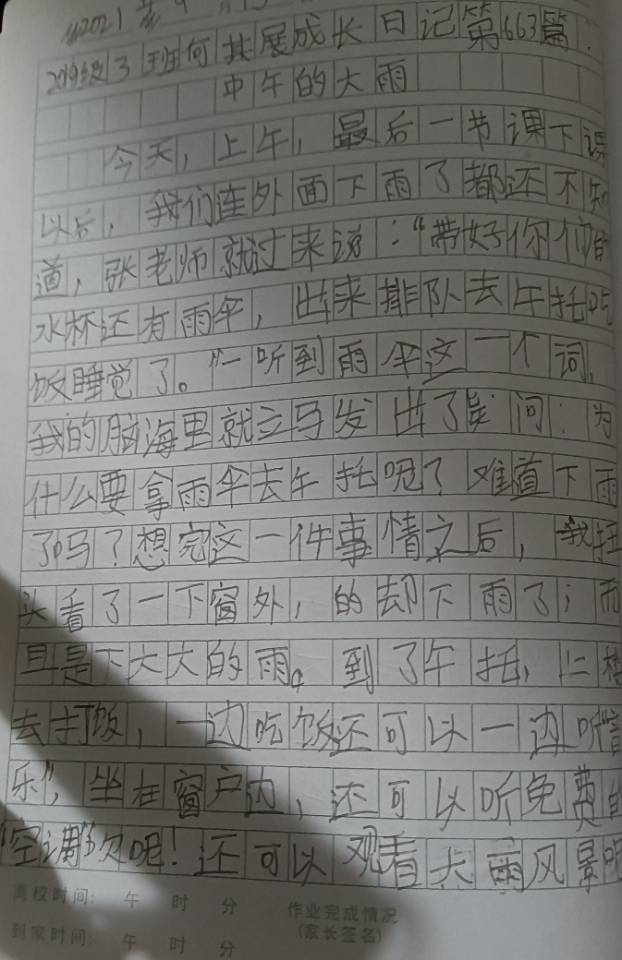 2021
2019级3班何共展成长日记第663篇.
中午的大雨
今天,上午,最后一节课下课
以后,我们连外面下雨了都还不知
道,张老师就过来说:“带好你们的
水杯还有雨伞,出来排队去午托吃
饭睡觉了。”一听到雨伞这一个词,
我的脑海里就立马发出了疑问:为
什么要拿雨伞去午托呢?难道下雨
了吗?想完这一件事情之后,我扭
头看了一下窗外,的却下雨了;而
且是下大大的雨。到了午托,上楼
去打饭,一边吃饭还可以一边听“音
乐”,坐在窗户边,还可以听免费的
“空调”吹呢!还可以观看大雨风景呢
离校时间: 午 时 分 作业完成情况
到家时间: 午 时 分 (家长签名)